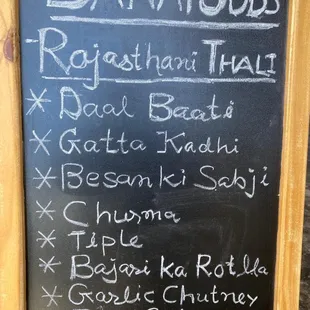 -Rajasthani THALI
* Daal Baati
* Gatta Kadhi
* Besan ki Sabji
* Churma
* Tiple
* Bajari ka Rotlla
* Garlic Chutney